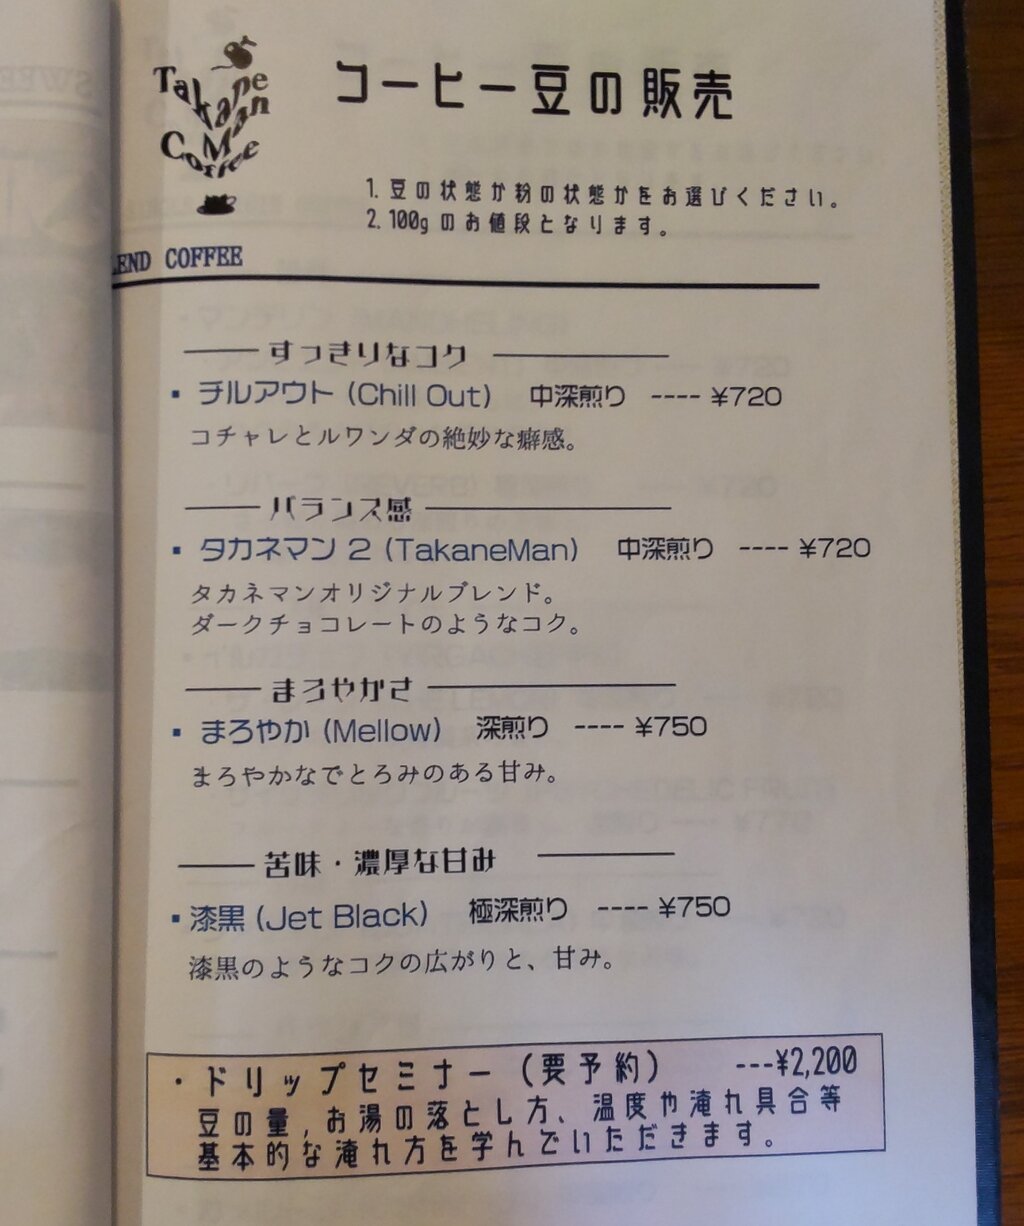 Takane
Man
Coffee
コーヒー豆の販売
1. 豆の状態か粉の状態かをお選びください。
2. 100g のお値段となります。
LEND COFFEE
すっきりなコク
・チルアウト (Chill Out) 中深煎り ---- ¥720
コチャレとルワンダの絶妙な癖感。
バランス感
・タカネマン 2 (TakaneMan) 中深煎り ---- ¥720
タカネマンオリジナルブレンド。
ダークチョコレートのようなコク。
まろやかさ
・まろやか (Mellow) 深煎り ---- ¥750
まろやかなでとろみのある甘み。
苦味・濃厚な甘み
・漆黒 (Jet Black) 極深煎り ---- ¥750
漆黒のようなコクの広がりと、甘み。
・ドリップセミナー (要予約) ---¥2,200
豆の量, お湯の落とし方、温度や淹れ具合等
基本的な淹れ方を学んでいただきます。